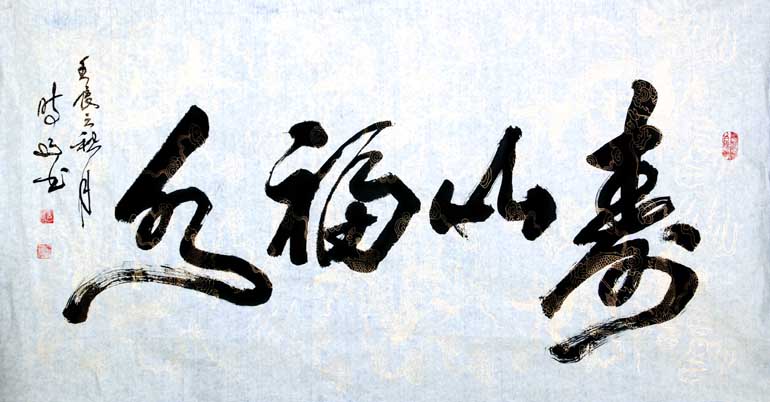 寿山福海
壬辰之秋月
時书